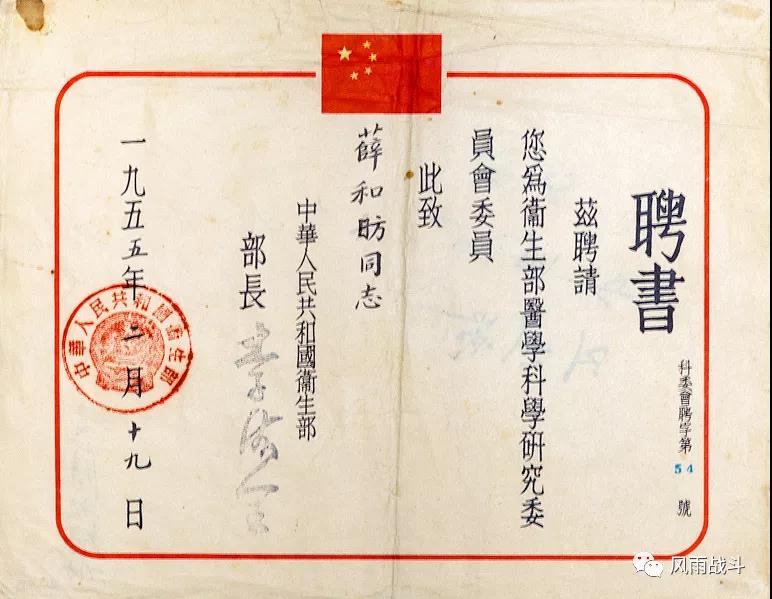 聘書
科委會聘字第54號
茲聘請
您爲衞生部醫學科學研究委
員會委員
此致
薛和昉同志
中華人民共和國衞生部
部長
一九五五年二月十九日
中華人民共和國衞生部
风雨战斗